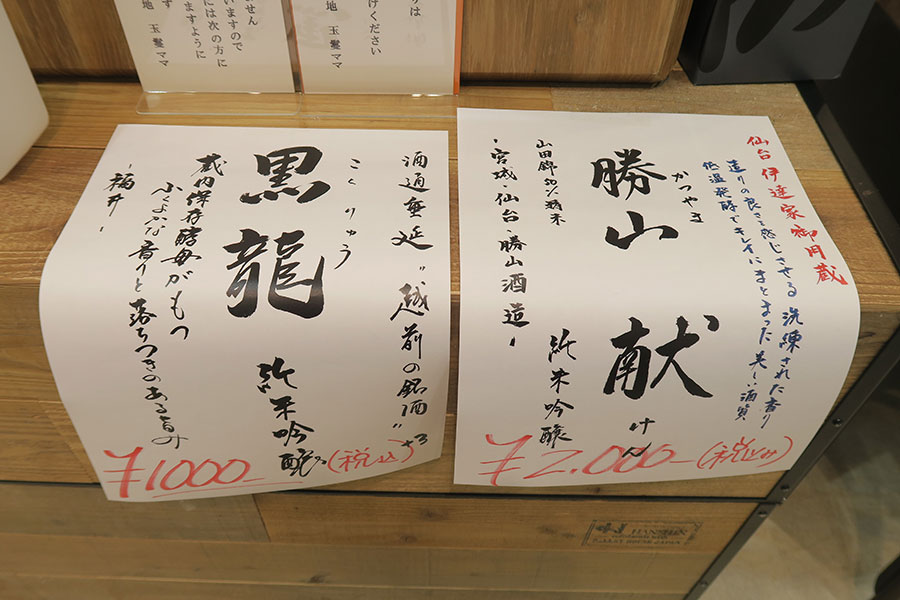 せん
いますので
には次の方に
ますように
地 玉鬘ママ
りは
けください
地 玉鬘ママ
酒通垂涎 "越前の銘酒" +3
こくりゅう
黒龍 純米吟醸
蔵内保存酵母がもつ
ふくよかな香りと落ちつきのある旨み
-福井-
¥1000 (税込)
仙台 伊達家御用蔵
造りの良さを感じさせる洗練された香り
低温発酵でキレイにまとまった美しい酒質
かつやま けん
勝山 献
純米吟醸
山田錦50%精米
-宮城・仙台・勝山酒造-
¥2.000 (税込み)